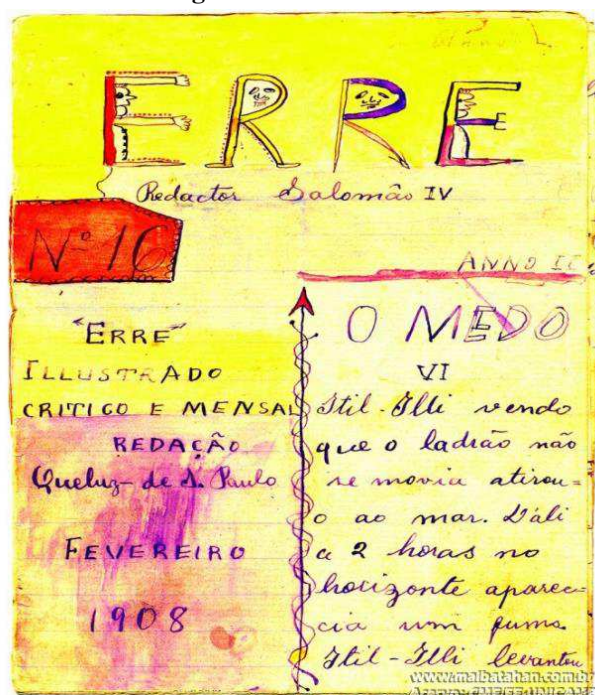 ERRE
Redactor Salomão IV
Nº 16
ANNO II
"ERRE"
ILLUSTRADO
CRITICO E MENSAL
REDAÇÃO
Queluz-de S. Paulo
FEVEREIRO
1908
O MEDO
VI
Itil-Illi vendo
que o ladrão não
se movia atirou-
o ao mar. D'áli
a 2 horas no
horizonte apare-
cia um fumo.
Itil-Illi levantou
www.malbatahan.com.br